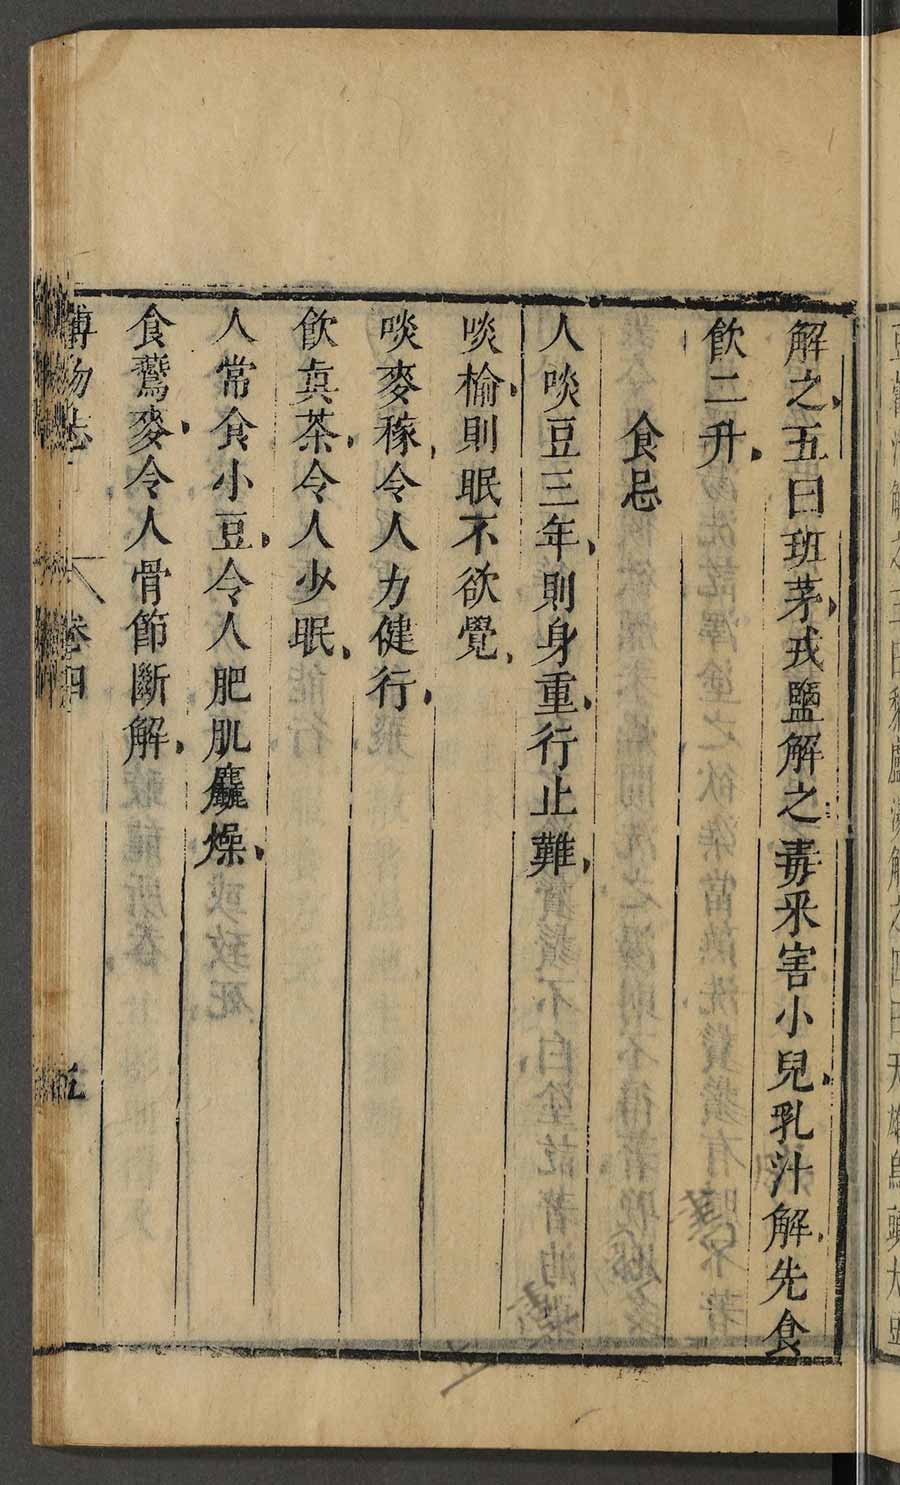 解之五曰班茅戎鹽解之毒采害小兒乳汁解先食
飲二升
食忌
人啖豆三年則身重行止難
啖榆則眠不欲覺
啖麥稼令人力健行
飲真茶令人少眠
人常食小豆令人肥肌麤燥
食鷰麥令人骨節斷解
博物志 卷四 五